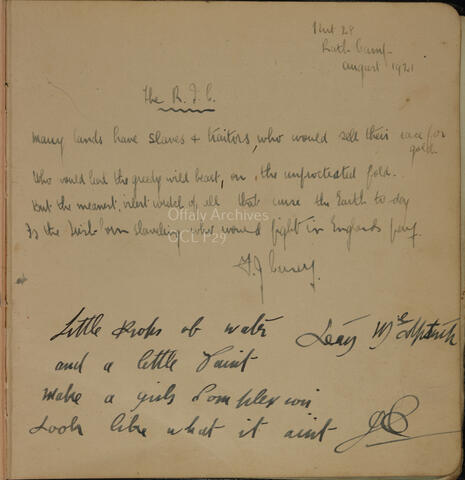 Hut 29
Rath Camp
August 1921
The R. I. C.
Many lands have slaves & traitors, who would sell their race for gold
Who would lead the greedy wild beast, on, the unprotected fold.
But the meanest, vilest of, all that curse the Earth to day
Is the Irish born slaveling who would fight in Englands pay.
Offaly Archives
OCL P29
Little drops of water
and a little Paint
make a girls Complexion
Look like what it aint